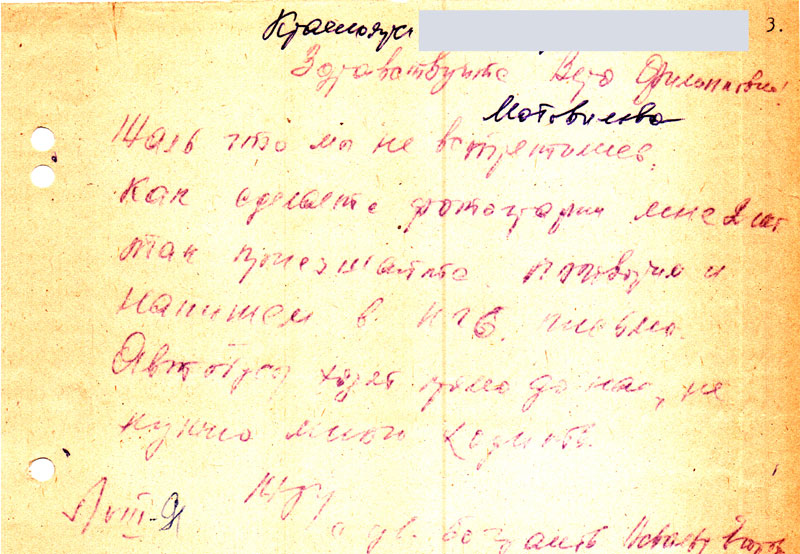 Красноярск
3.
Здравствуйте Вера Филипповна!
Мотовилова
Жаль что мы не встретились.
Как сделаете фотографии мне 2 шт
так приезжайте. и
напишем в КГБ письмо.
Автобусы ходят прямо до нас, не
нужно много ходить.
Жду